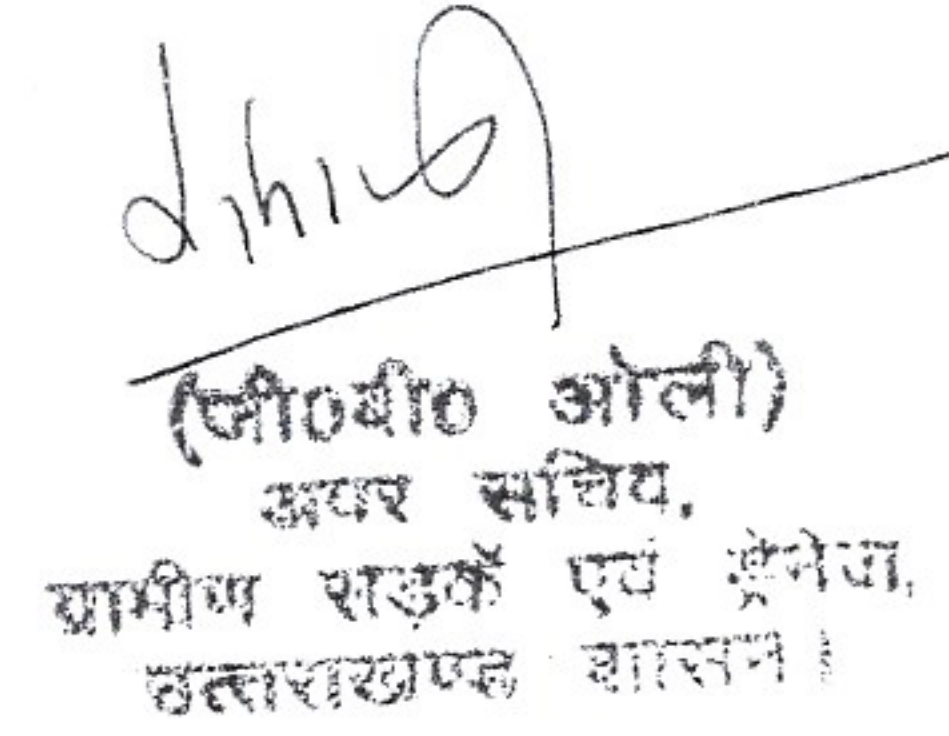 (जी0बी0 ओली)
अपर सचिव,
ग्रामीण सड़कें एवं ड्रेनेज,
उत्तराखण्ड शासन।